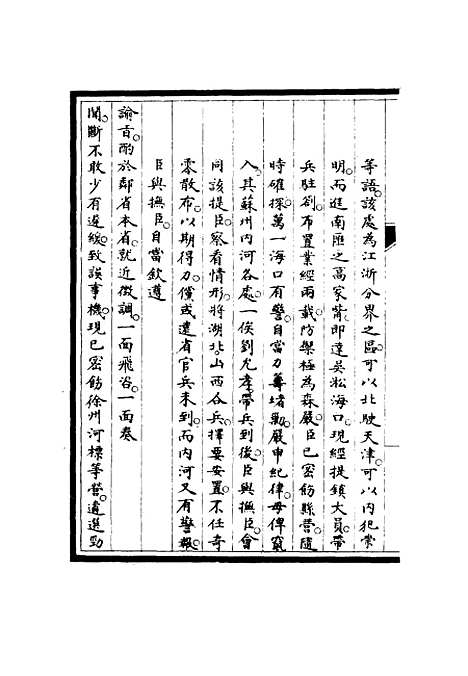 等語該處為江浙分界之區可以北駛天津可以內犯常
明而進南匯之高家嘴即達吳淞海口現經提鎮大員帶
兵駐劄布置業經兩載防禦極為森嚴臣已密飭縣營隨
時確探萬一海口有警自當力籌堵勦嚴申紀律毋俾竄
入其蘇州內河各處一俟劉允孝帶兵到後臣與撫臣會
同該提臣察看情形將湖北山西各兵擇要安置不任奇
零散布以期得力儻或遠省官兵未到而內河又有警報
臣與撫臣自當欽遵
諭旨酌於鄰省本省就近徵調一面飛咨一面奏
聞斷不敢少有遲緩致誤事機現已密飭徐州河標等營遴選勁